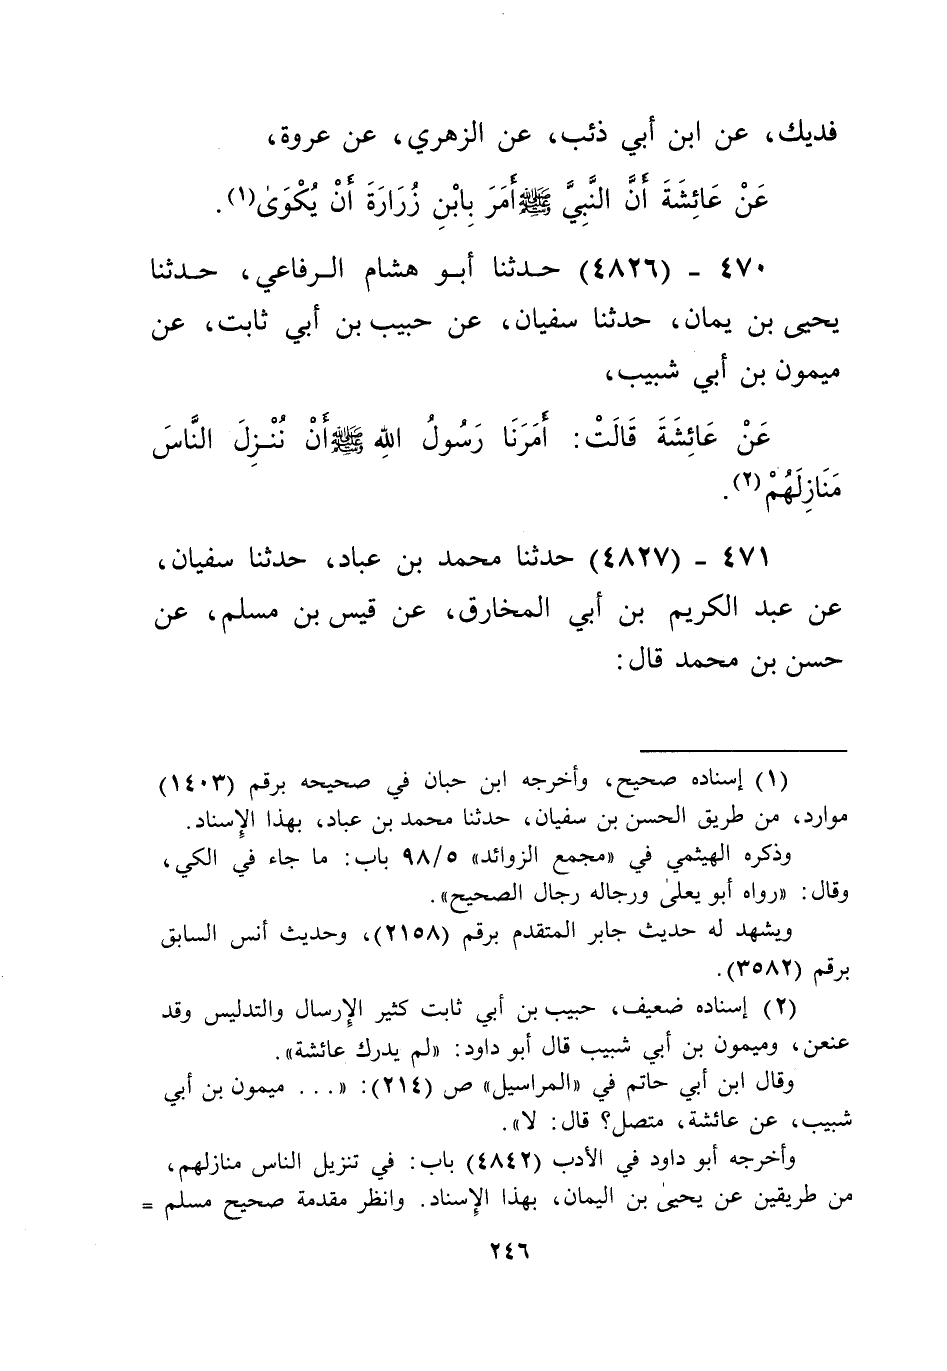 فديك، عن ابن أبي ذئب، عن الزهري، عن عروة،
عَنْ عَائِشَةَ أَنَّ النَّبِيَّ ﷺ أَمَرَ بِابْنِ زُرَارَةَ أَنْ يُكْوَىٰ(١).
٤٧٠ - (٤٨٢٦) حـدثنا أبـو هشام الـرفاعي، حـدثنا
يحيى بن يمان، حدثنا سفيان، عن حبيب بن أبي ثابت، عن
ميمون بن أبي شبيب،
عَنْ عَائِشَةَ قَالَتْ: أَمَرَنَا رَسُولُ اللهِ ﷺ أَنْ نُنْـزِلَ النَّاسَ
مَنَازِلَهُمْ(٢).
٤٧١ - (٤٨٢٧) حدثنا محمد بن عباد، حدثنا سفيان،
عن عبد الكريم بن أبي المخارق، عن قيس بن مسلم، عن
حسن بن محمد قال:
(١) إسناده صحيح، وأخرجه ابن حبان في صحيحه برقم (١٤٠٣)
موارد، من طريق الحسن بن سفيان، حدثنا محمد بن عباد، بهذا الإسناد.
وذكره الهيثمي في «مجمع الزوائد» ٩٨/٥ باب: ما جاء في الكي،
وقال: «رواه أبو يعلىٰ ورجاله رجال الصحيح».
ويشهد له حديث جابر المتقدم برقم (٢١٥٨)، وحديث أنس السابق
برقم (٣٥٨٢).
(٢) إسناده ضعيف، حبيب بن أبي ثابت كثير الإرسال والتدليس وقد
عنعن، وميمون بن أبي شبيب قال أبو داود: «لم يدرك عائشة».
وقال ابن أبي حاتم في «المراسيل» ص (٢١٤): «... ميمون بن أبي
شبيب، عن عائشة، متصل؟ قال: لا».
وأخرجه أبو داود في الأدب (٤٨٤٢) باب: في تنزيل الناس منازلهم،
من طريقين عن يحيىٰ بن اليمان، بهذا الإسناد. وانظر مقدمة صحيح مسلم =
٢٤٦